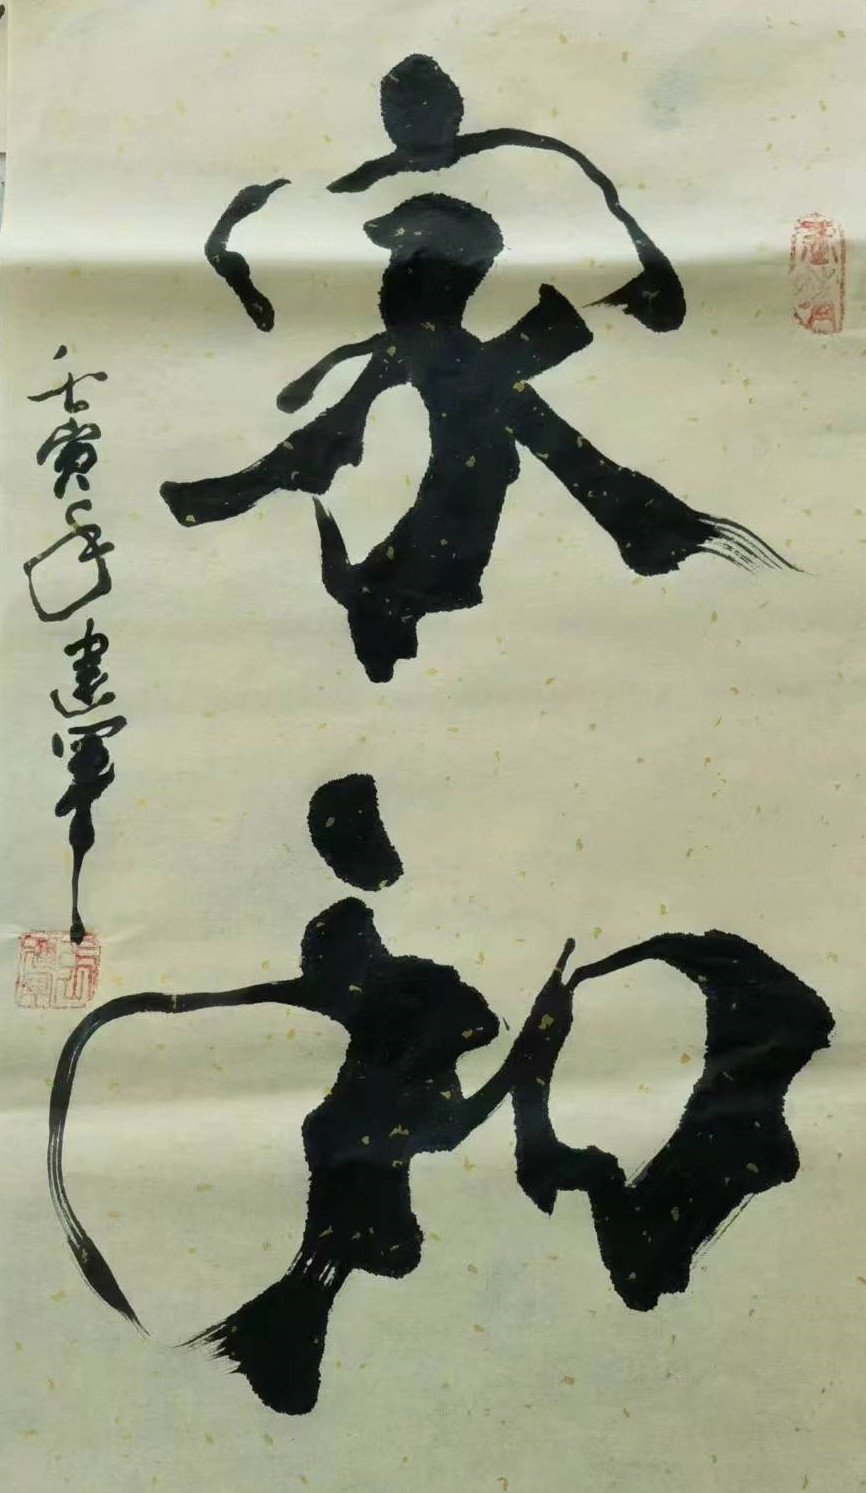 家和
壬寅年建军